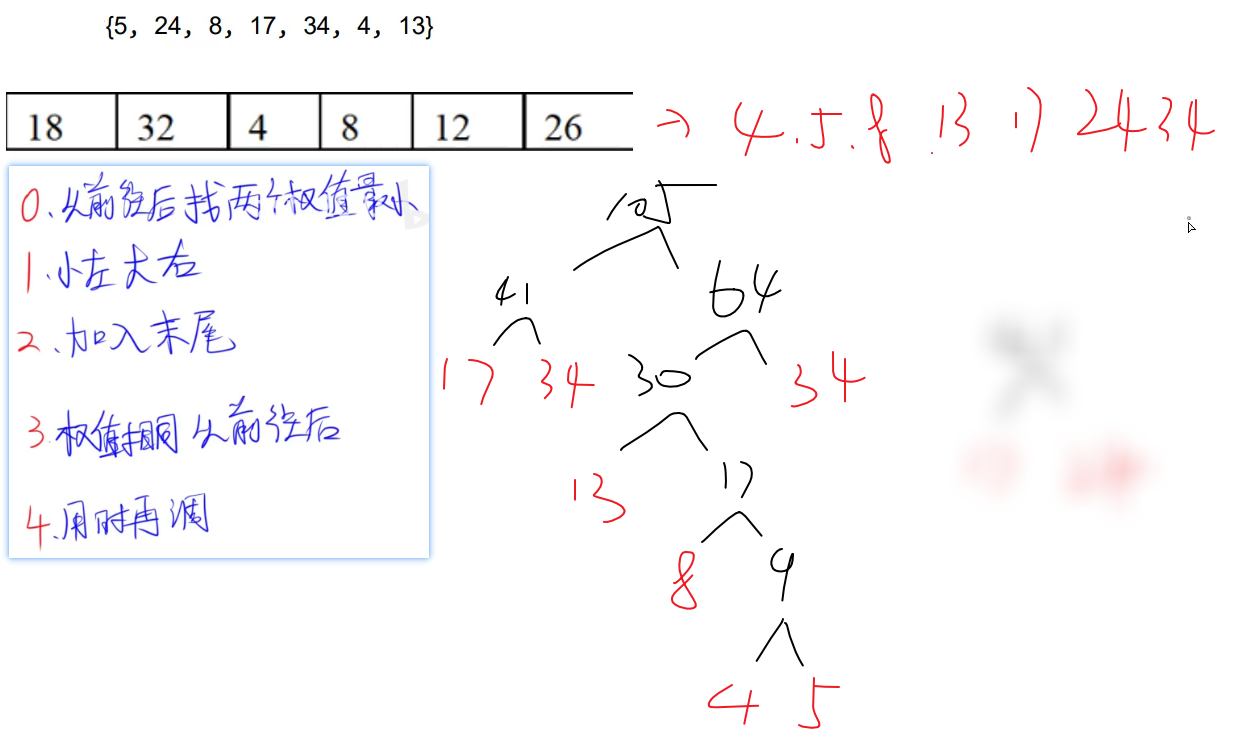 {5, 24, 8, 17, 34, 4, 13}
18 32 4 8 12 26
→ 4.5.8.13 17 24 34
0.从前往后找两个权值最小
1.小左大右
2、加入末尾
3.权值相同从前往后
4.用时再调
105
41 64
17 34 30 34
13 17
8 9
4 5